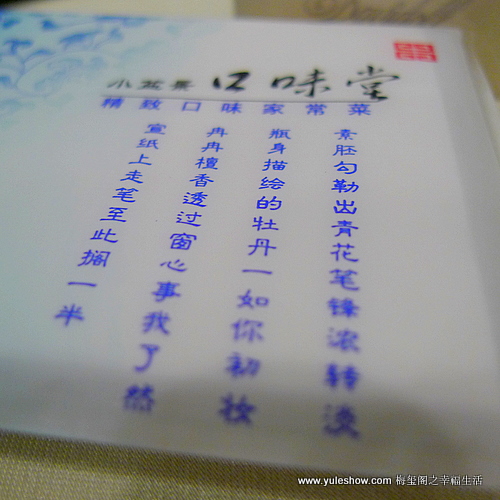 小盆景 口味堂
精致口味家常菜
素胚勾勒出青花笔锋浓转淡
瓶身描绘的牡丹一如你初妆
冉冉檀香透过窗心事我了然
宣纸上走笔至此搁一半
www.yuleshow.com 梅玺阁之幸福生活